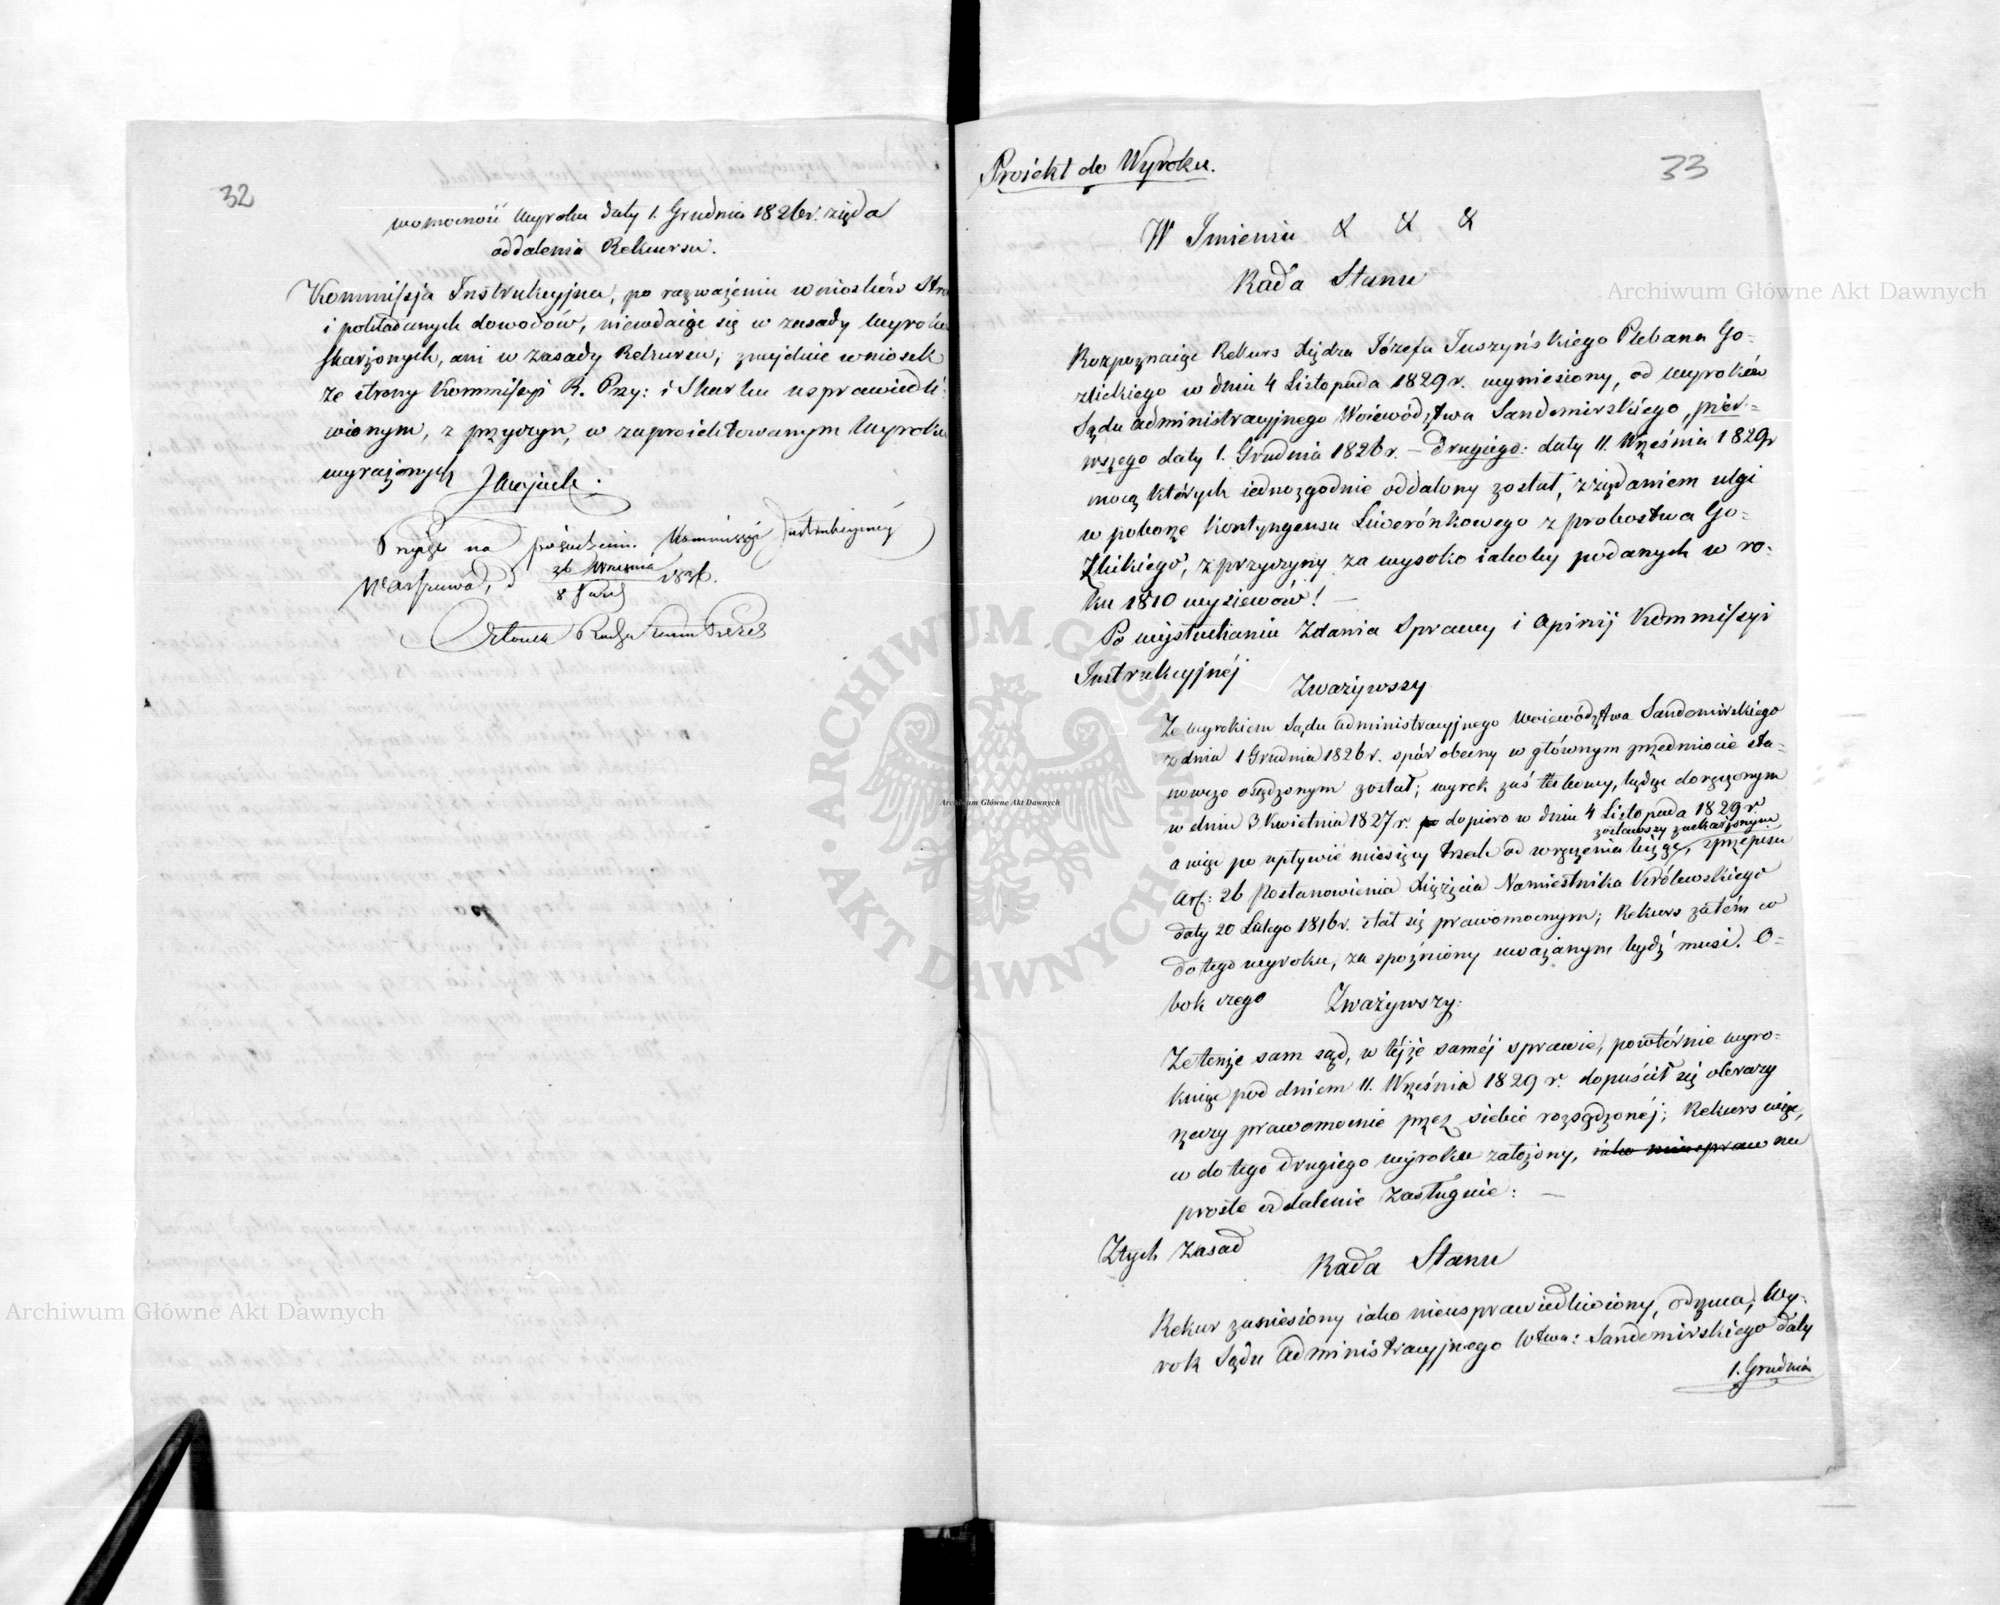 32
womocność wyroku daty 1. Grudnia 1826r. rząda
oddalenia Rekursu.
Kommissja Instrukcyjna, po rozważeniu wniosków Stro
i pokładanych dowodów, niewdaiąc się w zasady wyroków
skarżonych, ani w zasady Rekursu; znajduie wniosek
ze strony Kommissyi R. Prz: i Skarbu usprawiedli-
wionym, z przyczyn, w zaproiektowanym Wyroku
wyrażonych
Przyięte na posiedzeniu Kommissyi Instrukcyjnéj
Warszawa, d. 26 Września
8 Paźdz
Członek Rady Stanu Prezes
33
Proiekt do Wyroku.
W Imieniu & & &
Rada Stanu
Rozpoznaiąc Rekurs Xiędza Józefa Juszyńskiego Plebana Go-
zlickiego w dniu 4 Listopada 1829 r. wyniesiony, od wyroków
Sądu administracyjnego Woiewództwa Sandomirskiego, pier-
wszego daty 1. Grudnia 1826 r. — drugiego: daty 11. Września 1829 r
mocą których iednozgodnie oddalony został, z żądaniem ulgi
w poborze kontyngensu Liwerónkowego z probostwa Go-
źlickiego, z przyczyny za wysoko iakoby podanych w ro-
ku 1810 wysiewów! —
Po wysłuchaniu Zdania Sprawy i Opinij Kommissyi
Instrukcyjnéj
Zważywszy
Że wyrokiem Sądu administracyjnego Woiewództwa Sandomirskiego
z dnia 1 Grudnia 1826 r. spór obecny w głównym przedmiocie sta-
nowczo osądzonym został; wyrok zaś takowy, będąc doręczonym
w dniu 3 Kwietnia 1827 r. dopiero w dniu 4 Listopada 1829 r
zostawszy zaskarżonym
a więc po upływie miesięcy trzech od wręczenia licząc, z przepisu
Art: 26 Postanowienia Xiążęcia Namiestnika Królewskiego
daty 20 Lutego 1816 r. stał się prawomocnym; Rekurs zatém co
do tego wyroku, za spóźniony uważanym bydź musi. O-
bok czego Zważywszy:
Że tenże sam sąd, w téjże saméj sprawie, powtórnie wyro-
kuiąc pod dniem 11. Września 1829 r. dopuścił się obrazy
rzeczy prawomocnie przez siebie rozsądzonéj; Rekurs więc,
co do tego drugiego wyroku założony, na
proste oddalenie zasługuie: —
Z tych zasad
Rada Stanu
Rekurs zaniesiony iako nieusprawiedliwiony, odrzuca; Wy-
rok Sądu administracyjnego Wtwa: Sandomirskiego daty
1. Grudnia
Archiwum Główne Akt Dawnych
Archiwum Główne Akt Dawnych
Archiwum Główne Akt Dawnych
ARCHIWUM GŁÓWNE · AKT DAWNYCH ·